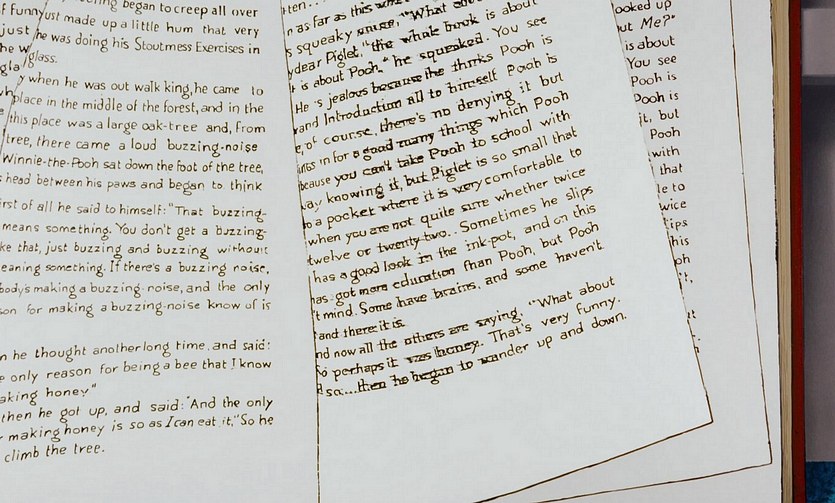 began to creep all over
funny
just made up a little hum that very
just he was doing his Stoutness Exercises in
he
glass.
when he was out walk king, he came to
place in the middle of the forest, and in the
this place was a large oak-tree and, from
tree, there came a loud buzzing-noise
Winnie-the-Pooh sat down the foot of the tree,
head between his paws and began to think
irst of all he said to himself: "That buzzing-
means something. You don't get a buzzing-
ke that, just buzzing and buzzing without
eaning something. If there's a buzzing noise,
body's making a buzzing-noise, and the only
son for making a buzzing-noise know of is
n he thought another long time, and said:
e only reason for being a bee that I know
aking honey"
then he got up, and said: "And the only
making honey is so as I can eat it." So he
climb the tree.
ten...
n as far as this
squeaky "What about
dear Piglet," the whole book is about
is about Pooh," he squeaked. You see
He is jealous because he thinks Pooh is
rand Introduction all to himself Pooh is
e, of course, there's no denying it but
ings in for a good many things which Pooh
because you can't take Pooh to school with
ay knowing it, but Piglet is so small that
to a pocket where it is very comfortable to
when you are not quite sure whether twice
twelve or twenty-two.. Sometimes he slips
has a good look in the ink-pot, and on this
has got more education than Pooh, but Pooh
't mind. Some have brains, and some haven't
and there it is.
nd now all the others are saying, "What about
So perhaps it was honey. That's very funny.
so....then he began to wander up and down.
ooked up
ut Me?"
is about
You see
Pooh is
Pooh is
it, but
Pooh
with
that
le to
wice
lips
his
oh
't,